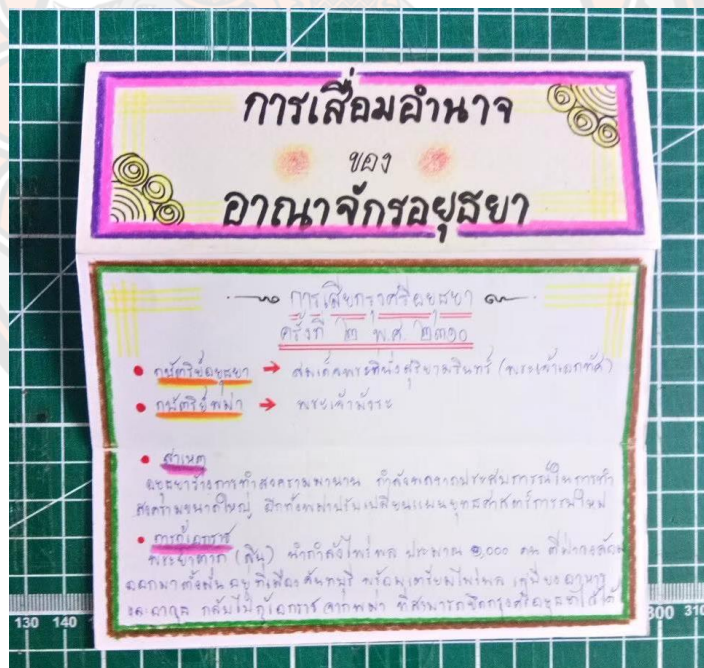 การเสื่อมอำนาจ
ของ
อาณาจักรอยุธยา
การเสียกรุงศรีอยุธยา
ครั้งที่ ๒ พ.ศ. ๒๓๑๐
กษัตริย์อยุธยา → สมเด็จพระที่นั่งสุริยามรินทร์ (พระเจ้าเอกทัศ)
กษัตริย์พม่า → พระเจ้ามังระ
สาเหตุ
อยุธยาว่างการทำสงครามมานาน กำลังพลขาดประสบการณ์ในการทำ
สงครามขนาดใหญ่ อีกทั้งพม่าปรับเปลี่ยนแผนยุทธศาสตร์การรบใหม่
การกู้เอกราช
พระยาตาก (สิน) นำกำลังไพร่พล ประมาณ ๑,๐๐๐ คน ตีฝ่าวงล้อม
ออกมาตั้งมั่นอยู่ที่เมืองจันทบุรี พร้อมเตรียมไพร่พล เสบียงอาหาร
และอาวุธ กลับไปกู้เอกราชจากพม่า ที่สามารถยึดกรุงศรีอยุธยาไว้ได้
130 140
300 310